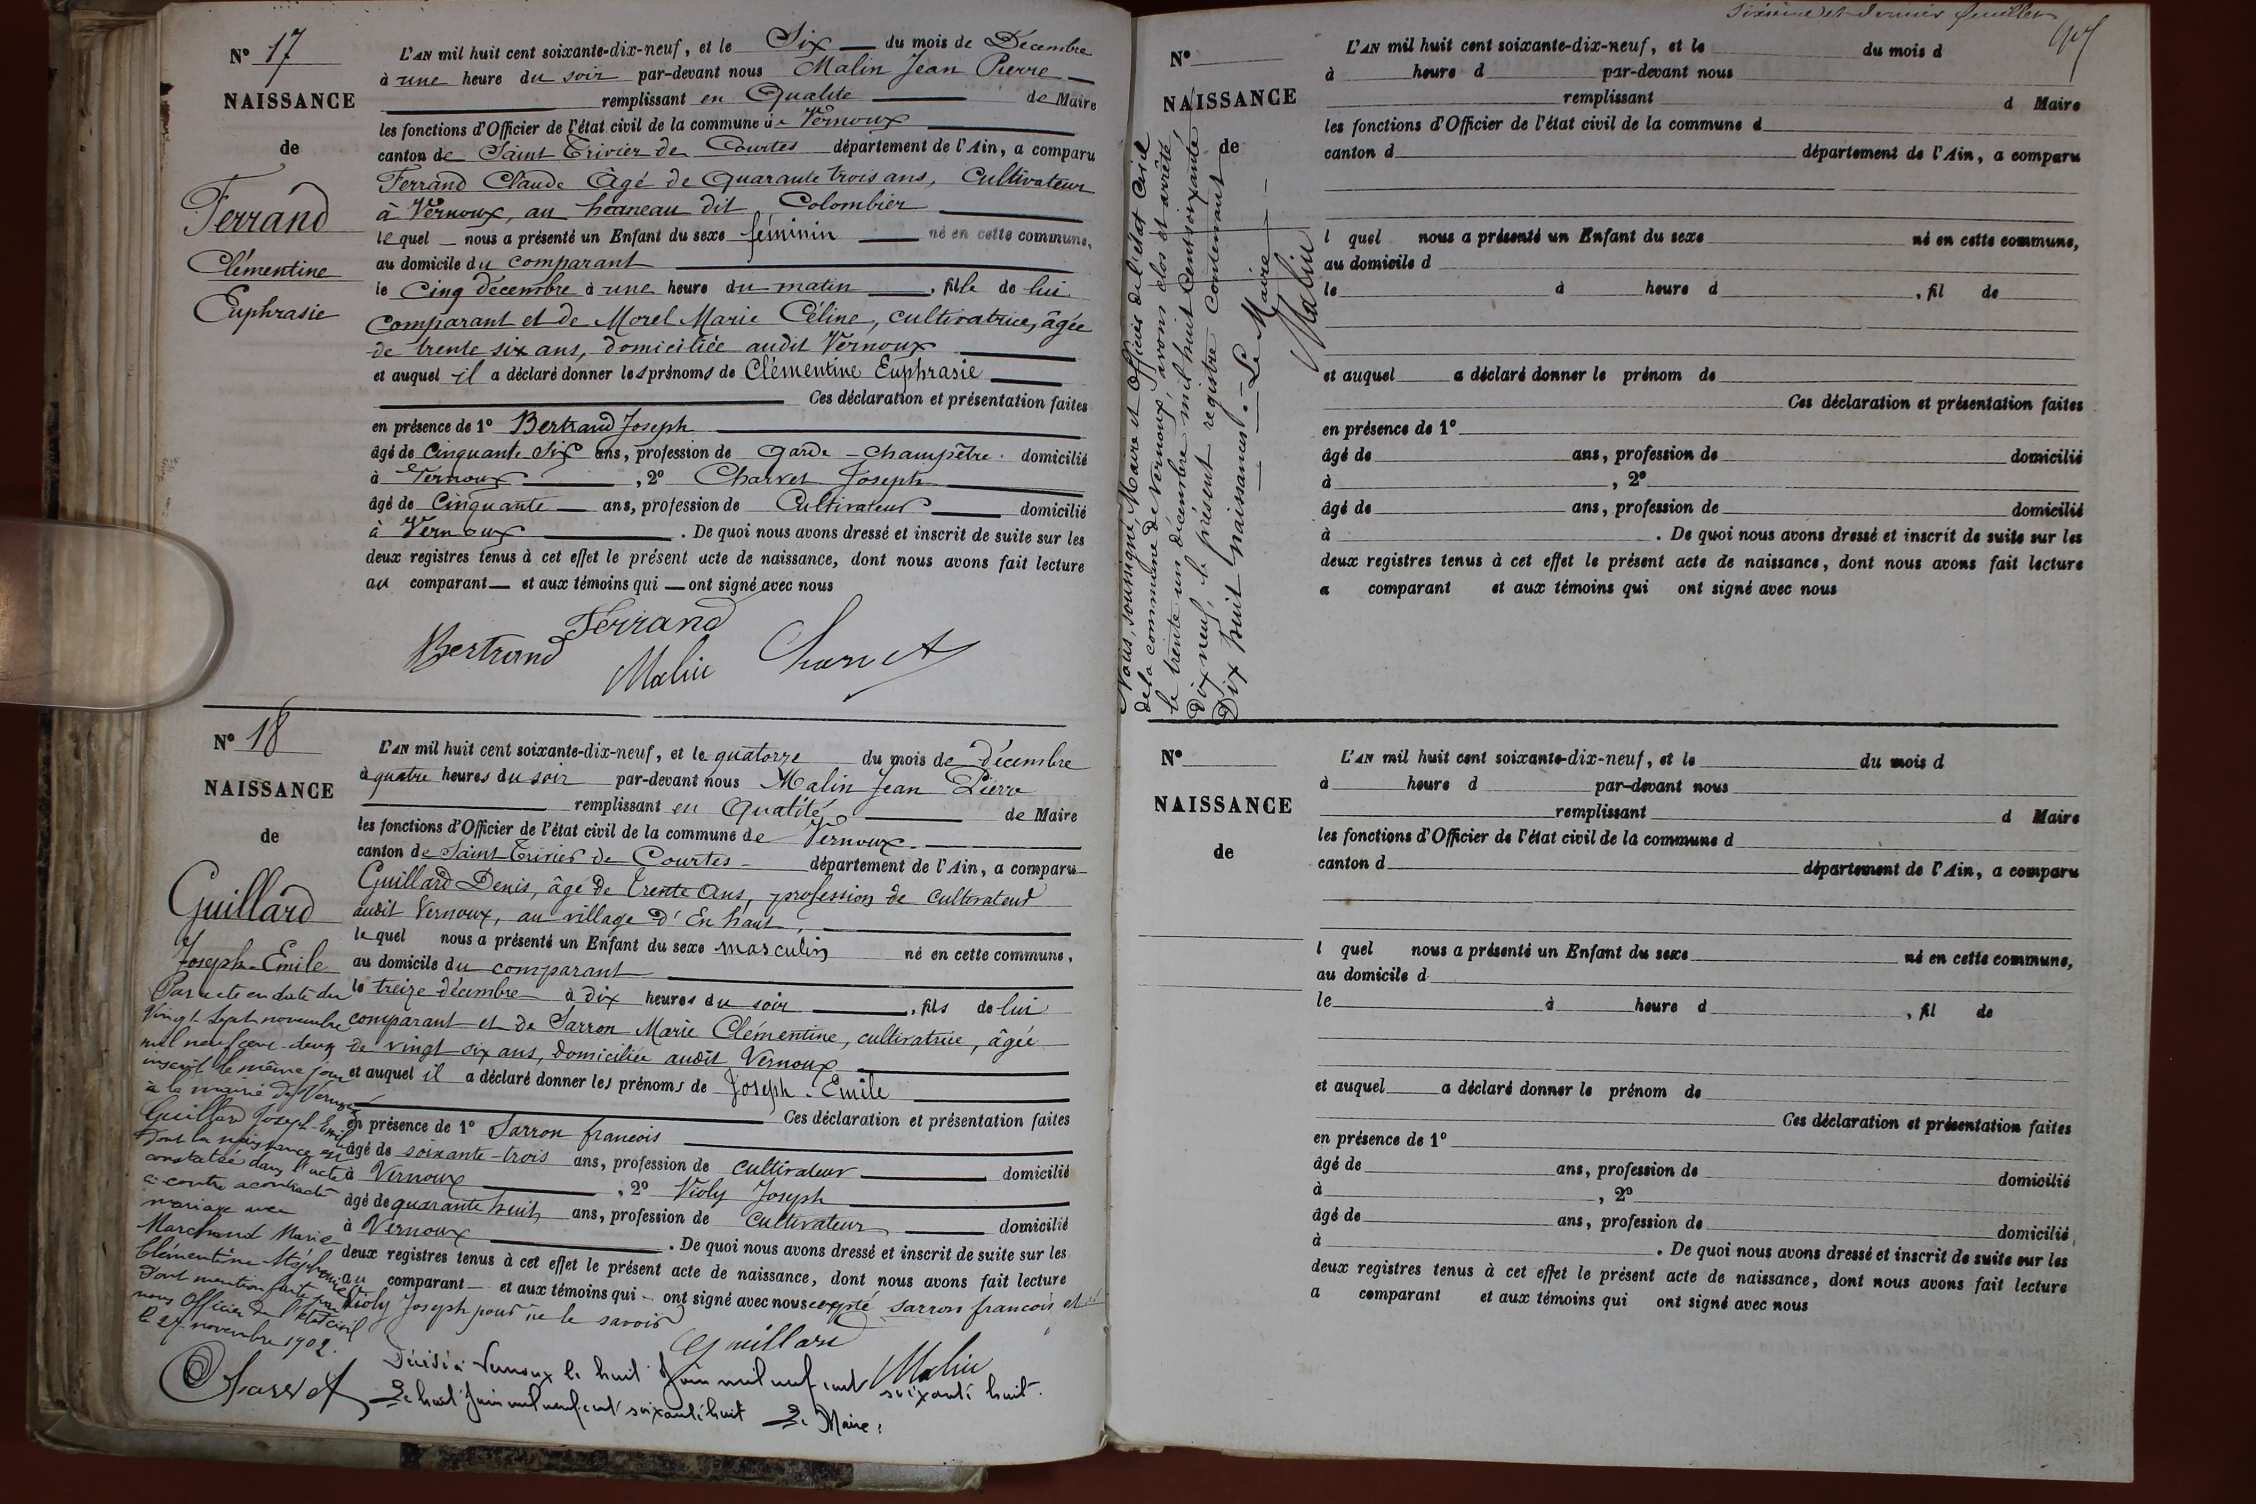 N° 17
NAISSANCE
de
Ferrand
Clémentine
Euphrasie
L'AN mil huit cent soixante-dix-neuf, et le Six du mois de Décembre
à une heure du soir par-devant nous Malin Jean Pierre
remplissant en Qualité de Maire
les fonctions d'Officier de l'état civil de la commune de Vernoux
canton de Saint Trivier de Courtes département de l'Ain, a comparu
Ferrand Claude Agé de Quarante trois ans, Cultivateur
à Vernoux, au hameau dit Colombier
lequel nous a présenté un Enfant du sexe féminin né en cette commune,
au domicile du comparant
le Cinq décembre à une heure du matin, fille de lui
Comparant et de Morel Marie Céline, cultivatrice, âgée
de trente six ans, domiciliée audit Vernoux
et auquel il a déclaré donner les prénoms de Clémentine Euphrasie
Ces déclaration et présentation faites
en présence de 1° Bertrand Joseph
âgé de Cinquante Six ans, profession de Garde-champêtre domicilié
à Vernoux, 2° Charvet Joseph
âgé de Cinquante ans, profession de Cultivateur domicilié
à Vernoux. De quoi nous avons dressé et inscrit de suite sur les
deux registres tenus à cet effet le présent acte de naissance, dont nous avons fait lecture
au comparant et aux témoins qui ont signé avec nous
Ferrand
Bertrand Malin Charvet
N° 18
NAISSANCE
de
Guillard
Joseph-Emile
Par acte en date du
vingt sept novembre
mil neuf cent deux
inscrit le même jour
à la mairie de Vernoux
Guillard Joseph-Emile
dont la naissance est
constatée dans l'acte
ci-contre a contracté
mariage avec
Marchand Marie
Clémentine Stéphanie
Dont mention faite par
nous Officier de l'Etat civil
le 27 novembre 1902.
Charvet
L'AN mil huit cent soixante-dix-neuf, et le quatorze du mois de décembre
à quatre heures du soir par-devant nous Malin Jean Pierre
remplissant en Qualité de Maire
les fonctions d'Officier de l'état civil de la commune de Vernoux
canton de Saint Trivier de Courtes département de l'Ain, a comparu
Guillard Denis, âgé de trente ans, profession de cultivateur
audit Vernoux, au village d'En haut,
lequel nous a présenté un Enfant du sexe masculin né en cette commune,
au domicile du comparant
le treize décembre à dix heures du soir, fils de lui
comparant et de Sarron Marie Clémentine, cultivatrice, âgée
de vingt six ans, domiciliée audit Vernoux
et auquel il a déclaré donner les prénoms de Joseph-Emile
Ces déclaration et présentation faites
en présence de 1° Sarron francois
âgé de soixante-trois ans, profession de cultivateur domicilié
à Vernoux, 2° Violy Joseph
âgé de quarante huit ans, profession de cultivateur domicilié
à Vernoux. De quoi nous avons dressé et inscrit de suite sur les
deux registres tenus à cet effet le présent acte de naissance, dont nous avons fait lecture
au comparant et aux témoins qui ont signé avec nous excepté Sarron francois et
Violy Joseph pour ne le savoir
Guillard
Malin
Décédé à Vernoux le huit Juin mil neuf cent soixante huit.
Le huit Juin mil neuf cent soixante huit Le Maire:
Sixième et dernier feuillet
N°
NAISSANCE
de
Nous, soussigné, Maire et Officier de l'état Civil
de la commune de Vernoux, avons clos et arrêté
le trente un décembre mil huit cent soixante
dix neuf, le présent registre contenant
Dix huit naissances. Le Maire
Malin
L'AN mil huit cent soixante-dix-neuf, et le du mois d
à heure d par-devant nous
remplissant d Maire
les fonctions d'Officier de l'état civil de la commune d
canton d département de l'Ain, a comparu
l quel nous a présenté un Enfant du sexe né en cette commune,
au domicile d
le à heure d , fil de
et auquel a déclaré donner le prénom de
Ces déclaration et présentation faites
en présence de 1°
âgé de ans, profession de domicilié
à , 2°
âgé de ans, profession de domicilié
à . De quoi nous avons dressé et inscrit de suite sur les
deux registres tenus à cet effet le présent acte de naissance, dont nous avons fait lecture
a comparant et aux témoins qui ont signé avec nous
N°
NAISSANCE
de
L'AN mil huit cent soixante-dix-neuf, et le du mois d
à heure d par-devant nous
remplissant d Maire
les fonctions d'Officier de l'état civil de la commune d
canton d département de l'Ain, a comparu
l quel nous a présenté un Enfant du sexe né en cette commune,
au domicile d
le à heure d , fil de
et auquel a déclaré donner le prénom de
Ces déclaration et présentation faites
en présence de 1°
âgé de ans, profession de domicilié
à , 2°
âgé de ans, profession de domicilié
à . De quoi nous avons dressé et inscrit de suite sur les
deux registres tenus à cet effet le présent acte de naissance, dont nous avons fait lecture
a comparant et aux témoins qui ont signé avec nous